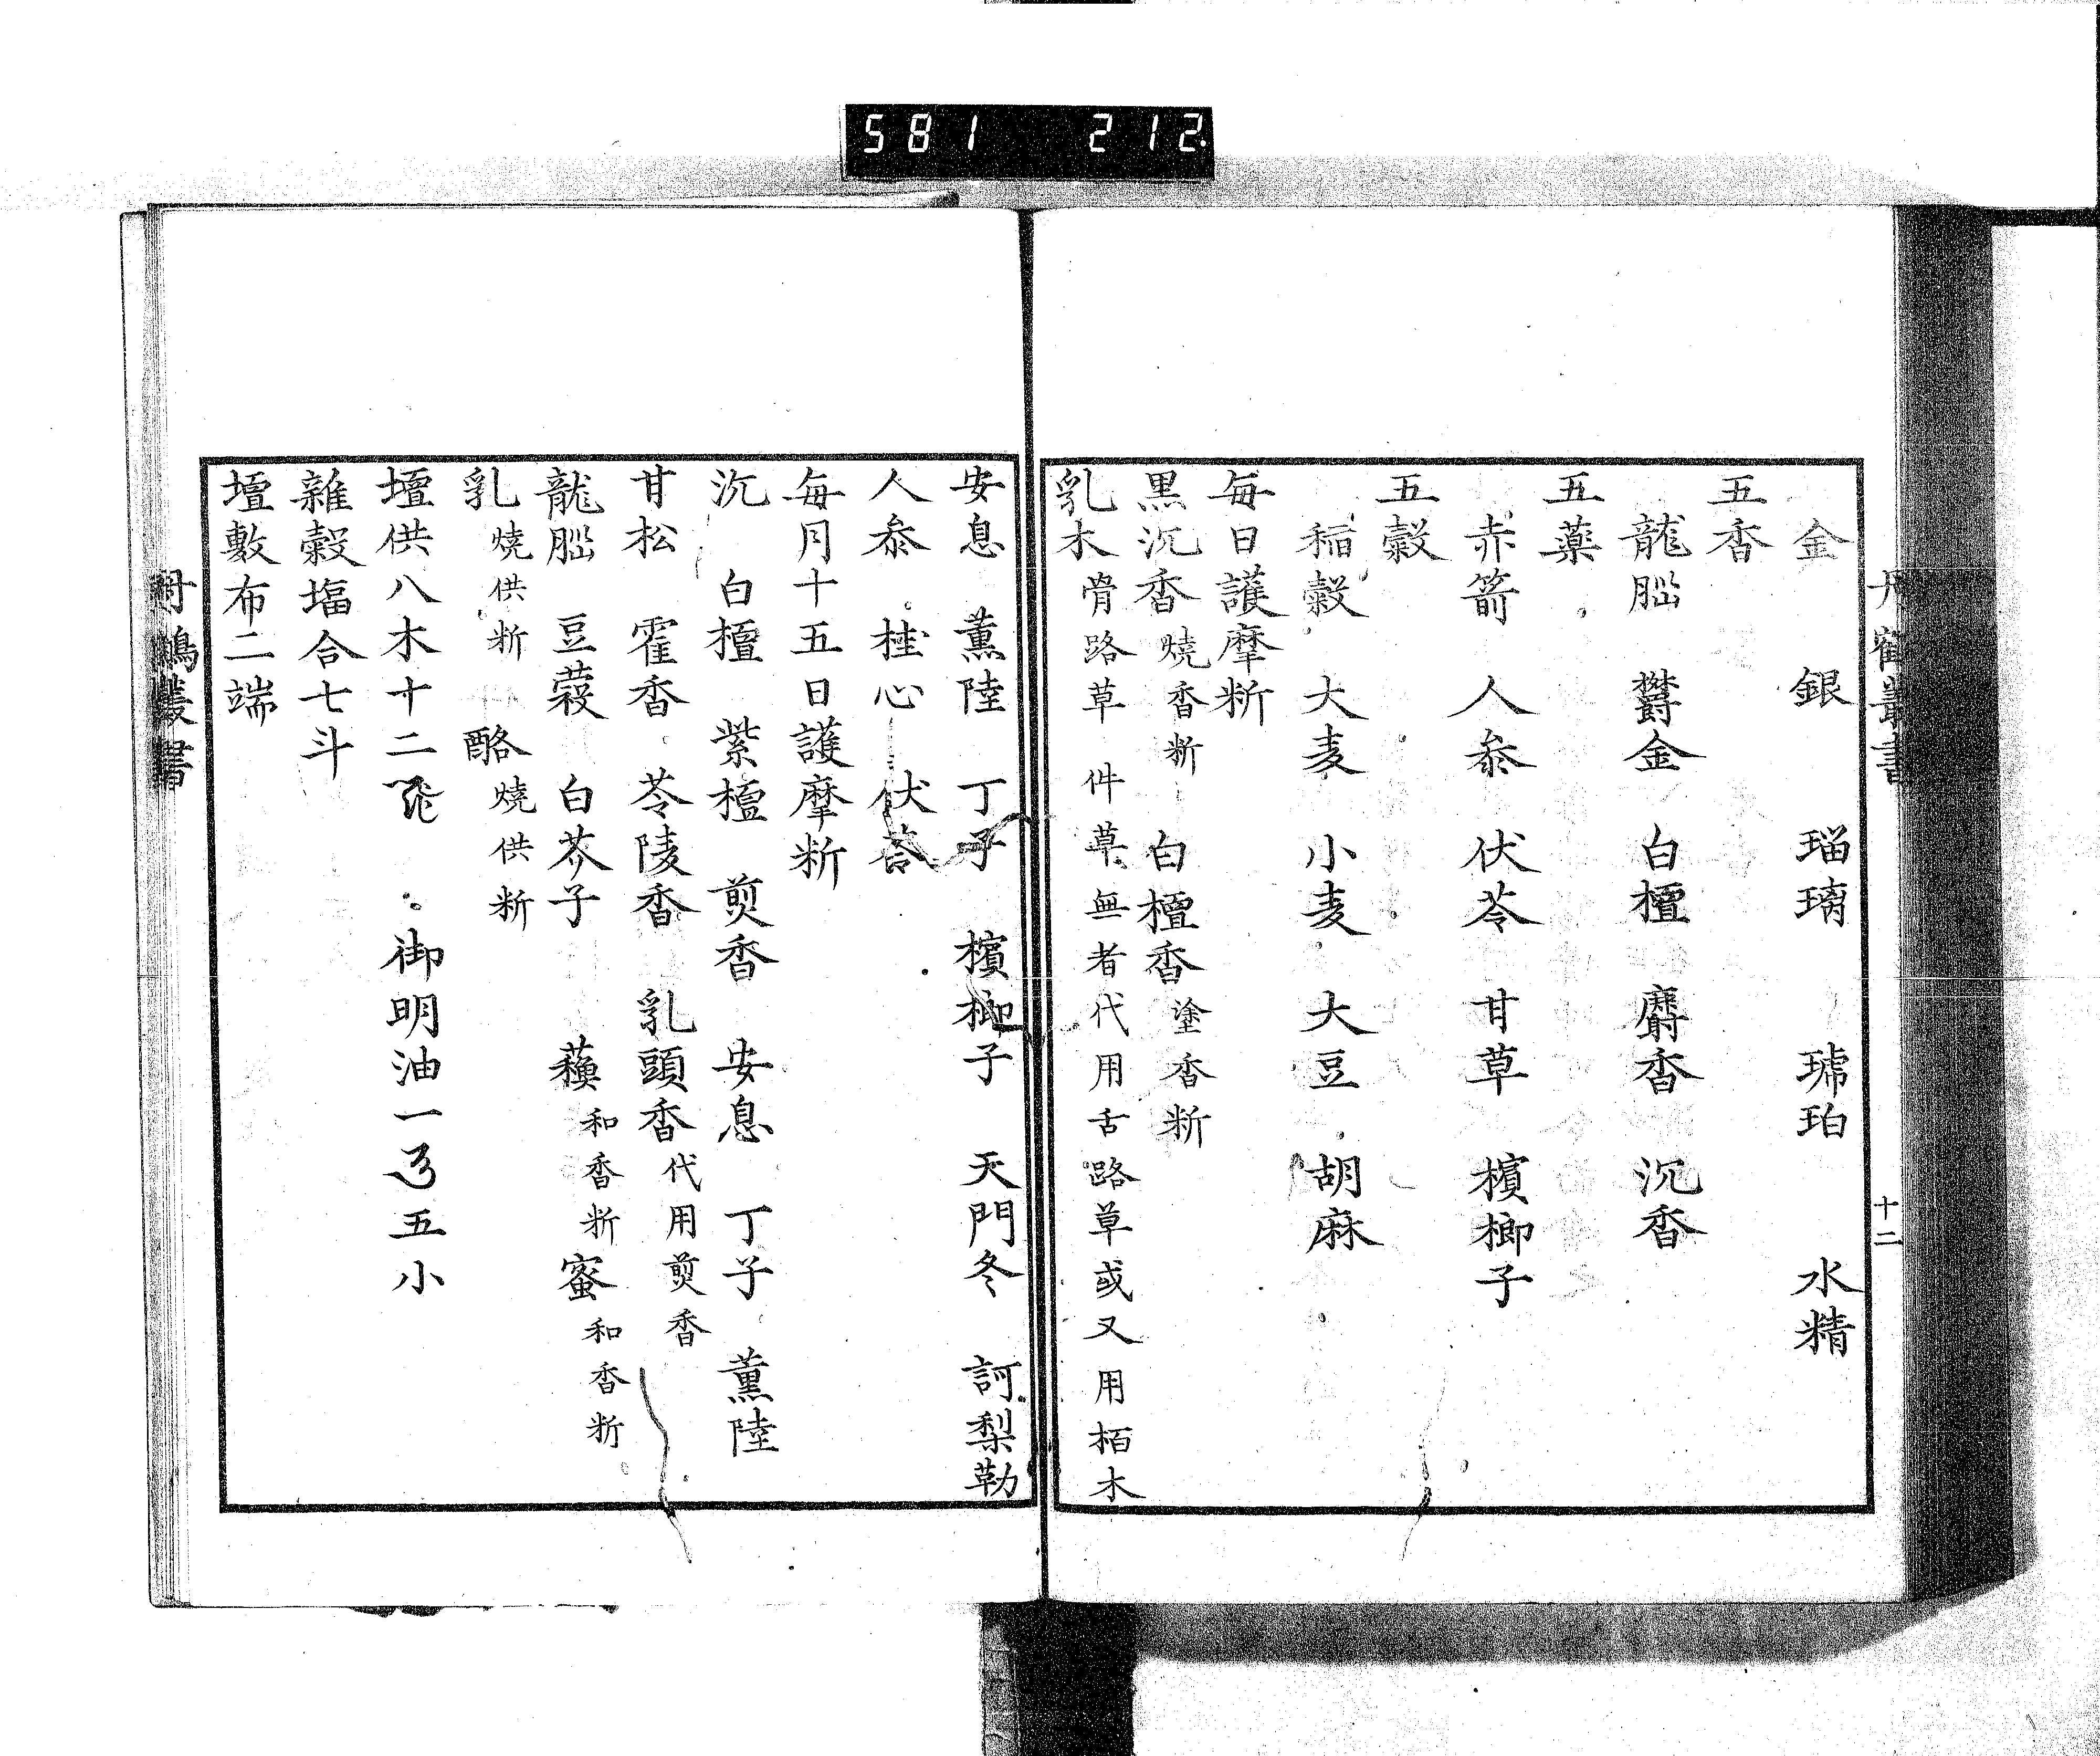 581 212
丹鶴叢書 十二
金 銀 瑠璃 琥珀 水精
五香
龍脳 欝金 白檀 麝香 沉香
五薬
赤箭 人参 伏苓 甘草 檳榔子
五穀
稲穀 大麦 小麦 大豆 胡麻
毎日護摩料
黒沉香燒香料 白檀香塗香料
乳木骨路草 件草無者代用舌路草或又用栢木
安息 薫陸 丁子 檳榔子 天門冬 訶梨勒
人参 桂心 伏苓
毎月十五日護摩料
沉 白檀 紫檀 煎香 安息 丁子 薫陸
甘松 霍香 苓陵香 乳頭香代用煎香
龍脳 豆蔲 白芥子 蘓和香料 蜜和香料
乳燒供料 酪燒供料
壇供八木十二 御明油一 五小
雜穀塩合七斗
壇敷布二端
丹鶴叢書